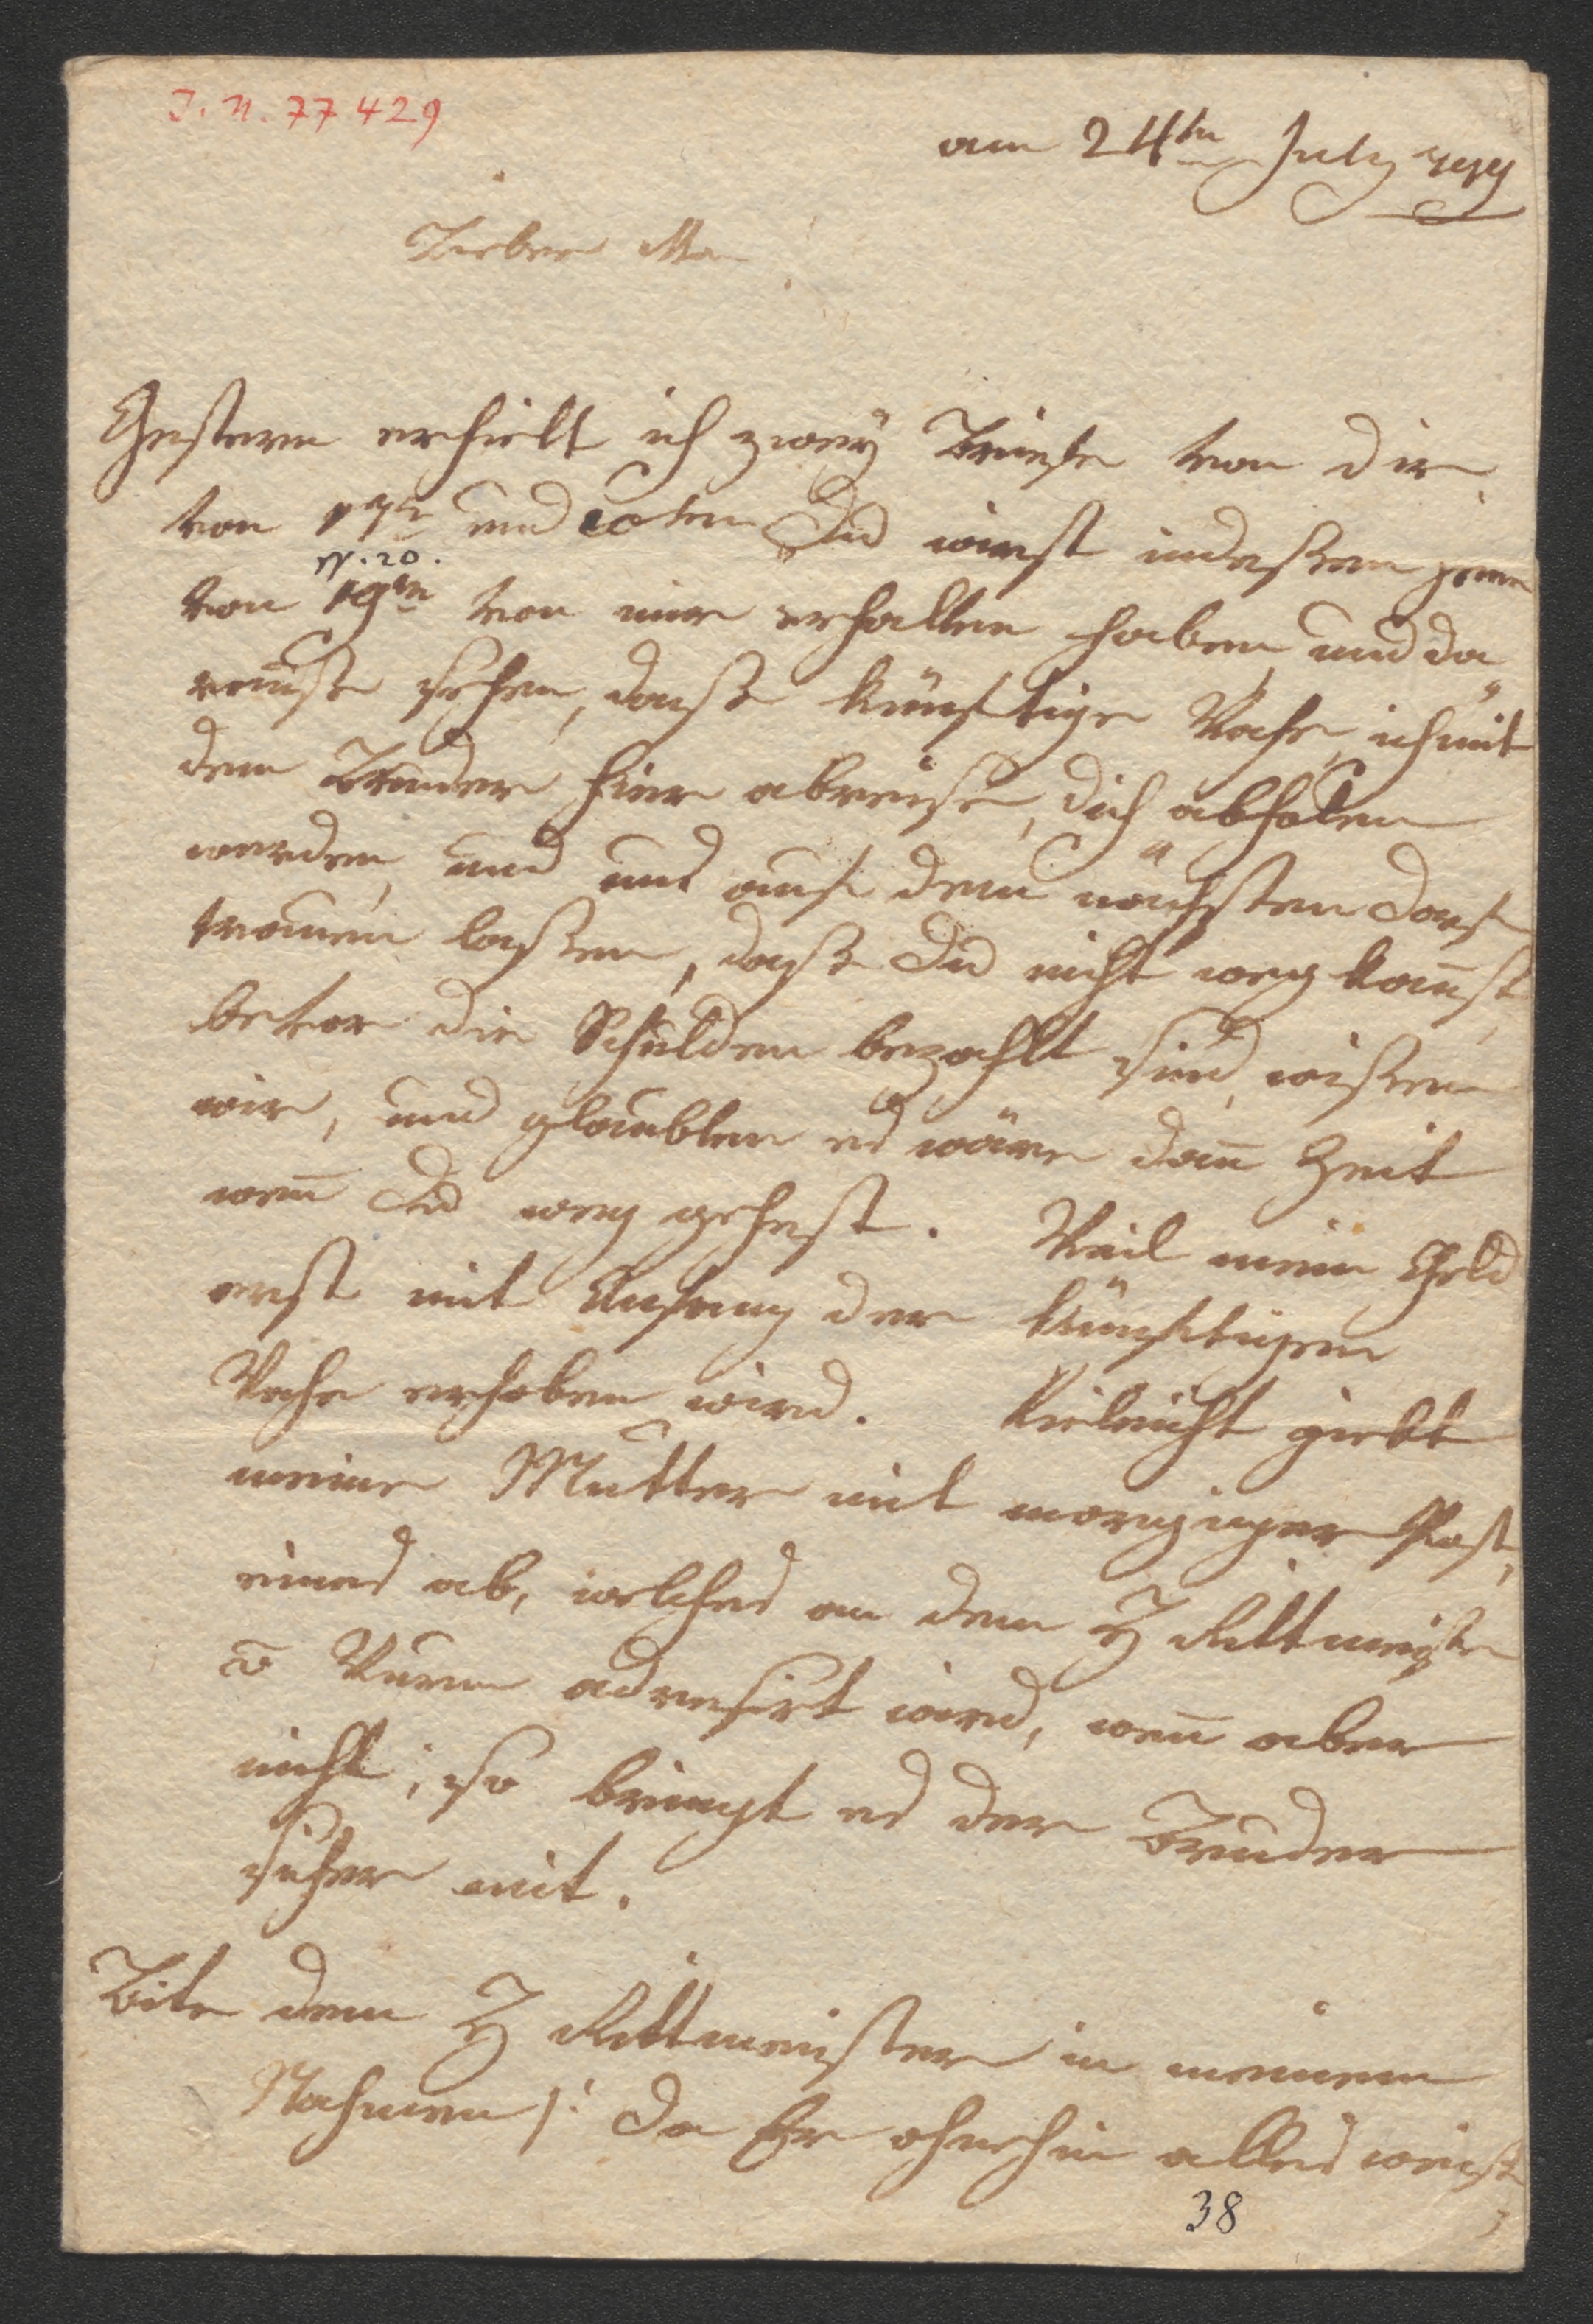 I. N. 77429
am 24ten July 799
Lieber Ma
Gestern erhielt ich zwey Briefe von dir
von 17ten und 20ten Du wirst indeßen jenen
N. 20.
von 19ten von mir erhalten haben, und da
rauß sehen, daß künftige Woche, ich mit
dem Bruder hier abreise, dich abholen
werden, und uns auf dem nächsten Dorf
trauen laßen, daß Du nicht weg kanst,
bevor die Schulden bezahlt sind, wißen
wir, und glaubten es wäre dan̅ Zeit
wen̅ Du weg gehest. Weil mein Geld
erst mit Anfang der künftigen
Woche erhoben wird. Vieleicht giebt
meine Mutter mit morgiger Post,
eines ab, welches an dem H Rittmeister
v adresirt wird, wen̅ aber
nicht, so bringt es der Bruder
sicher mit.
Bite dem H Rittmeister in meinem
Nahmen /: da Er ohnehin alles weiß
38